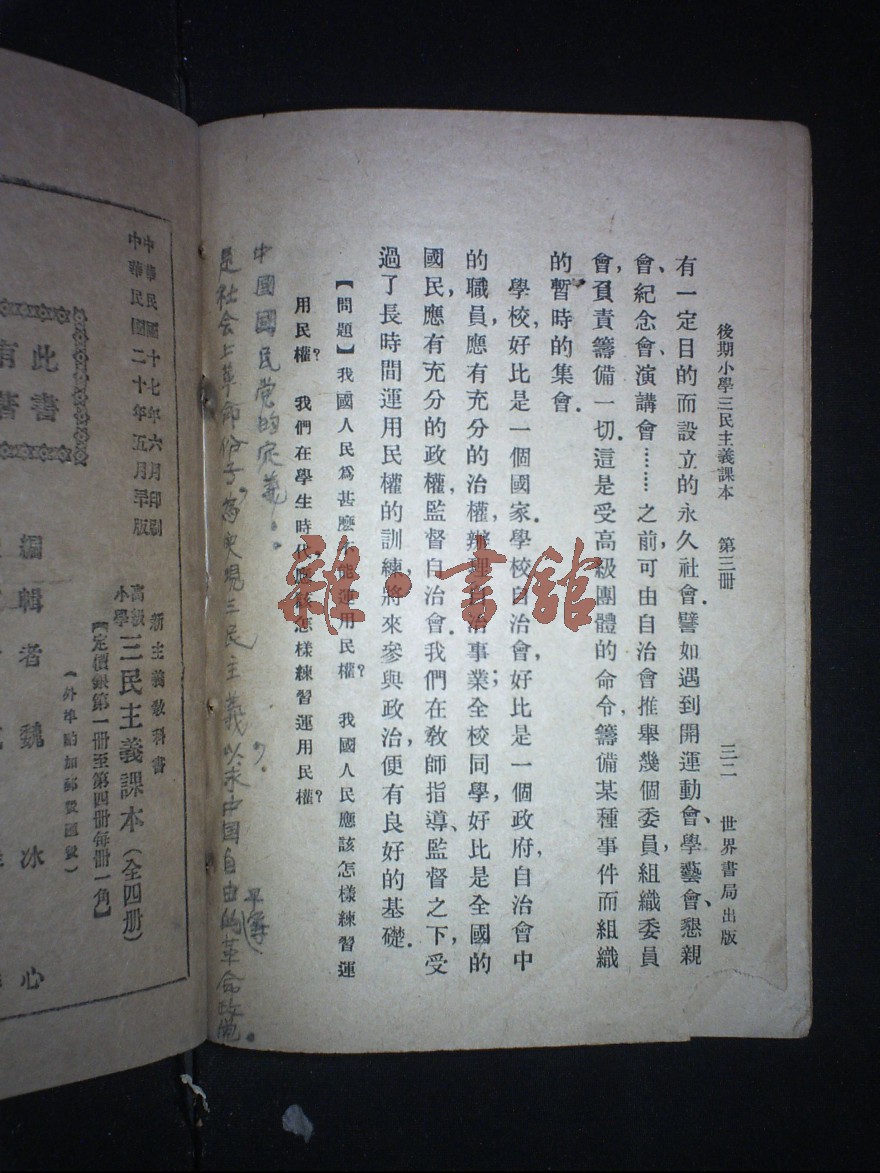 後期小學三民主義課本　第三冊　三二　世界書局出版
有一定目的而設立的永久社會.譬如遇到開運動會、學藝會、懇親
會、紀念會、演講會……之前,可由自治會推舉幾個委員,組織委員
會,負責籌備一切.這是受高級團體的命令,籌備某種事件而組織
的暫時的集會.
學校,好比是一個國家.學校自治會,好比是一個政府,自治會中
的職員,應有充分的治權,辦理自治事業;全校同學,好比是全國的
國民,應有充分的政權,監督自治會.我們在敎師指導、監督之下,受
過了長時間運用民權的訓練,將來參與政治,便有良好的基礎.
【問題】我國人民爲甚麽不能運用民權?　我國人民應該怎樣練習運
用民權?　我們在學生時代,應該怎樣練習運用民權?
中國國民党的定義:
是社会上革命份子,為实現三民主義,以求中国自由平等的革命政党.
雜·書舘
新主義敎科書
高級小學 三民主義課本(全四冊)
【定價銀第一冊至第四冊每冊一角】
(外埠酌加郵費匯費)
中華民國十七年六月印刷
中華民國二十年五月 版
此書
有著
編輯者 魏冰心